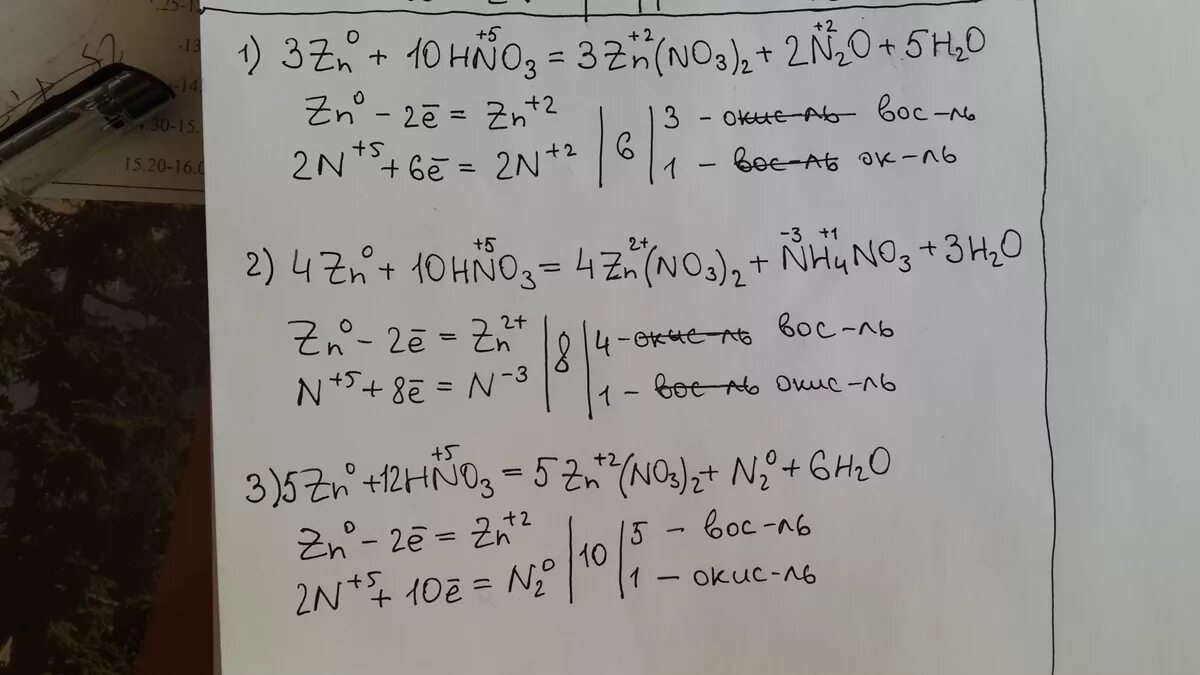 .25-1
-13
-14.
.30-15.
15.20-16.0
1) 3Zn⁰ + 10HN⁺⁵O₃ = 3Zn⁺²(NO₃)₂ + 2N⁺²₂O + 5H₂O
Zn⁰ - 2ē = Zn⁺² | | 3 - окис-ль вос-ль
2N⁺⁵ + 6ē = 2N⁺² | 6 | 1 - вос-ль ок-ль
2) 4Zn⁰ + 10HN⁺⁵O₃ = 4Zn²⁺(NO₃)₂ + N⁻³H⁺¹₄NO₃ + 3H₂O
Zn⁰ - 2ē = Zn²⁺ | 8 | 4 - окис-ль вос-ль
N⁺⁵ + 8ē = N⁻³ | | 1 - вос-ль окис-ль
3) 5Zn⁰ + 12HN⁺⁵O₃ = 5Zn⁺²(NO₃)₂ + N₂⁰ + 6H₂O
Zn⁰ - 2ē = Zn⁺² | 10 | 5 - вос-ль
2N⁺⁵ + 10ē = N₂⁰ | | 1 - окис-ль